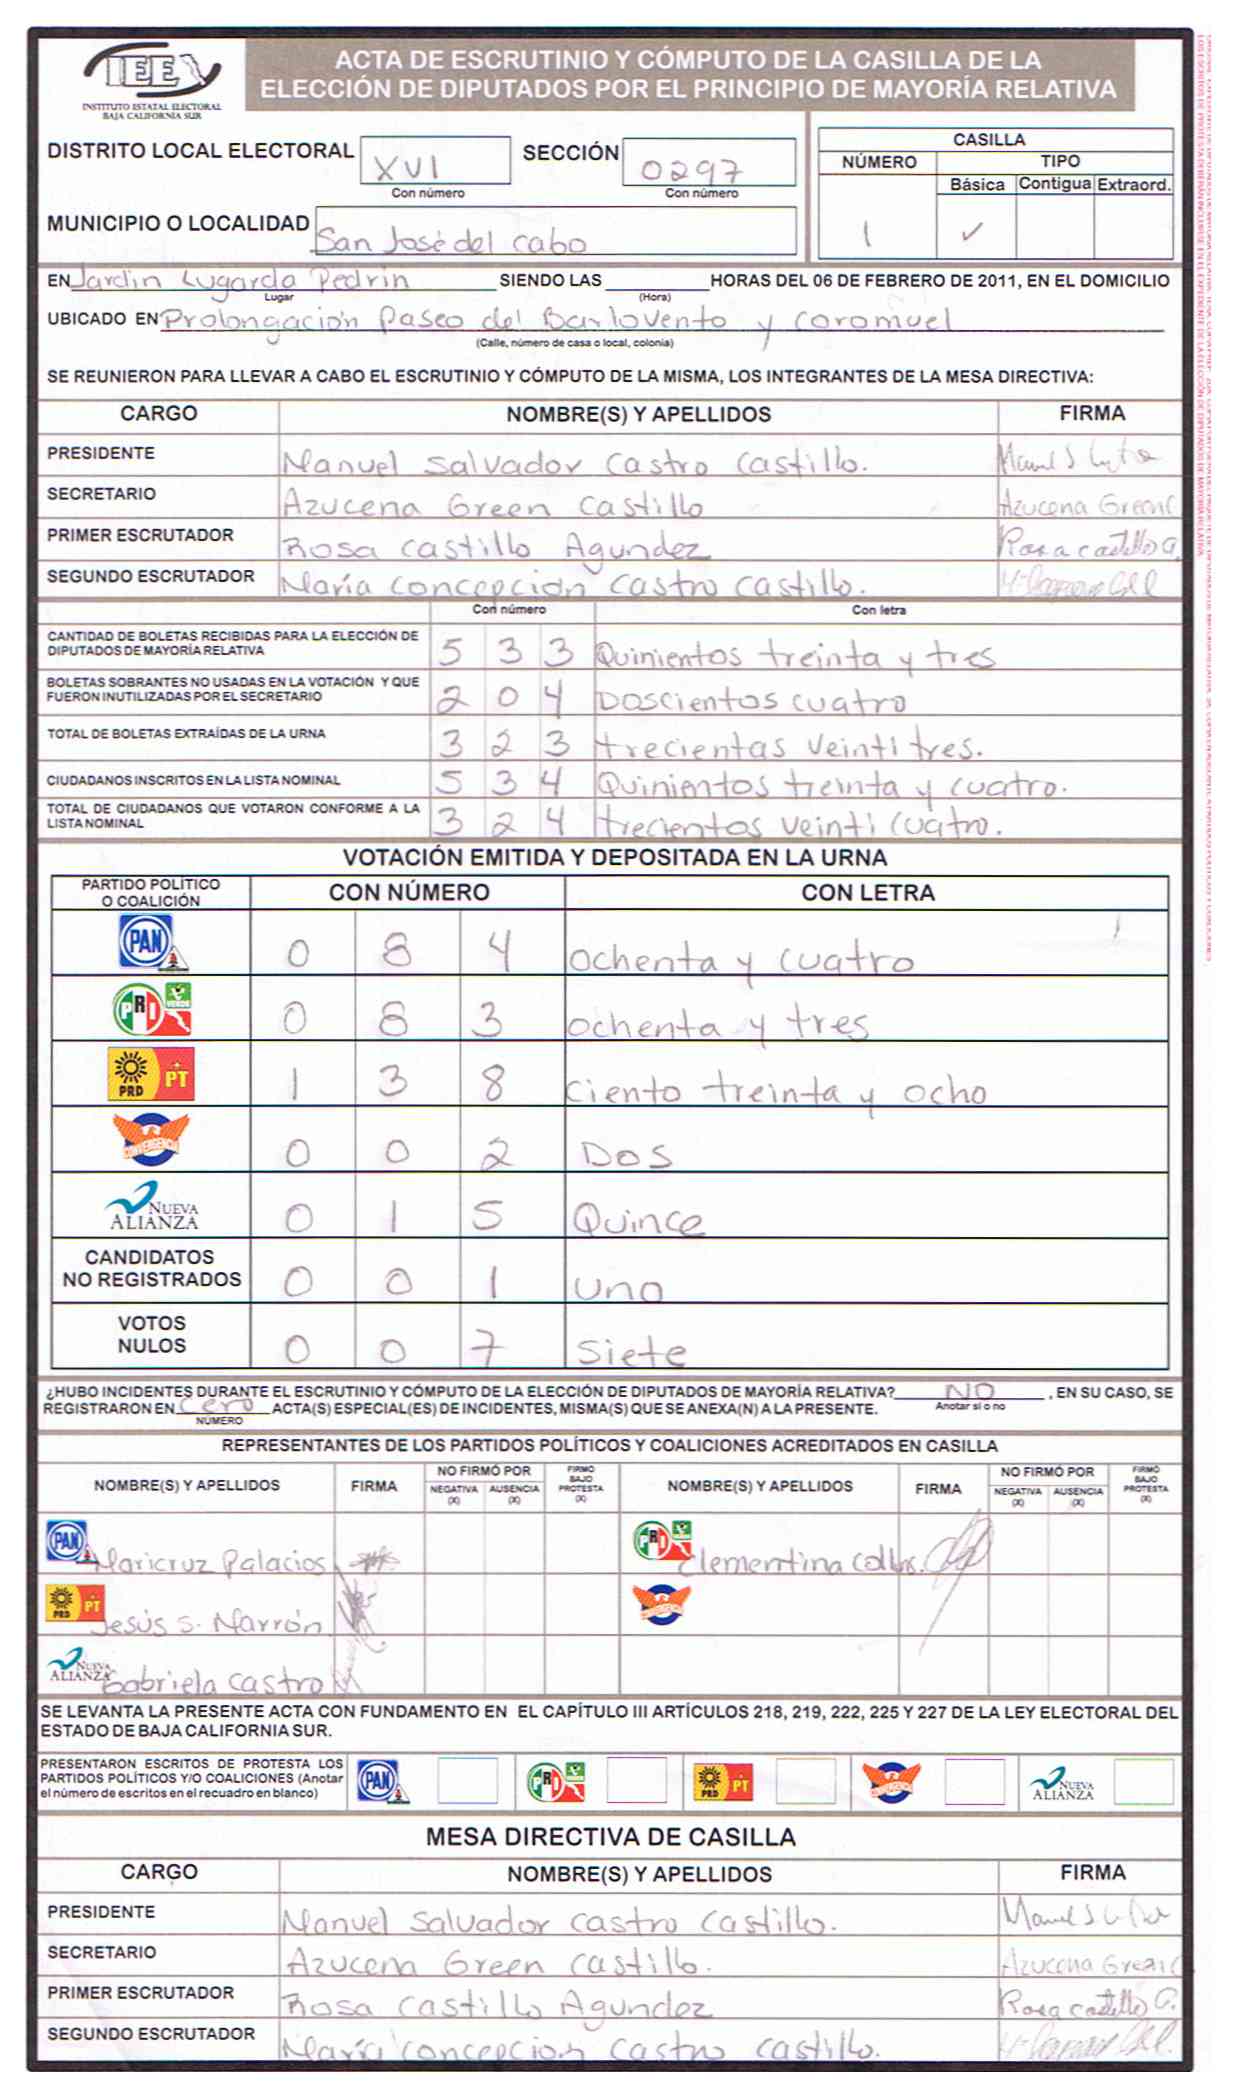 IEE
INSTITUTO ESTATAL ELECTORAL
BAJA CALIFORNIA SUR
ACTA DE ESCRUTINIO Y CÓMPUTO DE LA CASILLA DE LA
ELECCIÓN DE DIPUTADOS POR EL PRINCIPIO DE MAYORÍA RELATIVA
DISTRITO LOCAL ELECTORAL XVI SECCIÓN 0297
Con número Con número
MUNICIPIO O LOCALIDAD San José del Cabo
CASILLA
NÚMERO TIPO
Básica Contigua Extraord.
1 ✓
EN Jardin Lugarda Pedrin SIENDO LAS HORAS DEL 06 DE FEBRERO DE 2011, EN EL DOMICILIO
Lugar (Hora)
UBICADO EN Prolongación Paseo del Barlovento y Coromuel
(Calle, número de casa o local, colonia)
SE REUNIERON PARA LLEVAR A CABO EL ESCRUTINIO Y CÓMPUTO DE LA MISMA, LOS INTEGRANTES DE LA MESA DIRECTIVA:
CARGO NOMBRE(S) Y APELLIDOS FIRMA
PRESIDENTE Manuel Salvador Castro Castillo.
SECRETARIO Azucena Green Castillo Azucena Green C
PRIMER ESCRUTADOR Rosa Castillo Agundez Rosa Castillo A.
SEGUNDO ESCRUTADOR María Concepción Castro Castillo.
Con número Con letra
CANTIDAD DE BOLETAS RECIBIDAS PARA LA ELECCIÓN DE
DIPUTADOS DE MAYORÍA RELATIVA 5 3 3 Quinientos treinta y tres
BOLETAS SOBRANTES NO USADAS EN LA VOTACIÓN Y QUE
FUERON INUTILIZADAS POR EL SECRETARIO 2 0 4 Doscientos cuatro
TOTAL DE BOLETAS EXTRAÍDAS DE LA URNA 3 2 3 trecientas veinti tres.
CIUDADANOS INSCRITOS EN LA LISTA NOMINAL 5 3 4 Quinientos treinta y cuatro.
TOTAL DE CIUDADANOS QUE VOTARON CONFORME A LA
LISTA NOMINAL 3 2 4 trecientos veinti cuatro.
VOTACIÓN EMITIDA Y DEPOSITADA EN LA URNA
PARTIDO POLÍTICO
O COALICIÓN CON NÚMERO CON LETRA
PAN 0 8 4 ochenta y cuatro
PRI VERDE 0 8 3 ochenta y tres
PRD PT 1 3 8 ciento treinta y ocho
CONVERGENCIA 0 0 2 Dos
NUEVA
ALIANZA 0 1 5 Quince
CANDIDATOS
NO REGISTRADOS 0 0 1 uno
VOTOS
NULOS 0 0 7 siete
¿HUBO INCIDENTES DURANTE EL ESCRUTINIO Y CÓMPUTO DE LA ELECCIÓN DE DIPUTADOS DE MAYORÍA RELATIVA? NO , EN SU CASO, SE
Anotar si o no
REGISTRARON EN Cero ACTA(S) ESPECIAL(ES) DE INCIDENTES, MISMA(S) QUE SE ANEXA(N) A LA PRESENTE.
NÚMERO
REPRESENTANTES DE LOS PARTIDOS POLÍTICOS Y COALICIONES ACREDITADOS EN CASILLA
NOMBRE(S) Y APELLIDOS FIRMA NO FIRMÓ POR NEGATIVA (X) AUSENCIA (X) FIRMÓ BAJO PROTESTA (X) NOMBRE(S) Y APELLIDOS FIRMA NO FIRMÓ POR NEGATIVA (X) AUSENCIA (X) FIRMÓ BAJO PROTESTA (X)
PAN Maricruz Palacios PRI VERDE Clementina
PRD PT Jesús S. Marrón CONVERGENCIA
NUEVA ALIANZA Gabriela Castro M
SE LEVANTA LA PRESENTE ACTA CON FUNDAMENTO EN EL CAPÍTULO III ARTÍCULOS 218, 219, 222, 225 Y 227 DE LA LEY ELECTORAL DEL
ESTADO DE BAJA CALIFORNIA SUR.
PRESENTARON ESCRITOS DE PROTESTA LOS
PARTIDOS POLÍTICOS Y/O COALICIONES (Anotar
el número de escritos en el recuadro en blanco)
PAN PRI VERDE PRD PT CONVERGENCIA NUEVA ALIANZA
MESA DIRECTIVA DE CASILLA
CARGO NOMBRE(S) Y APELLIDOS FIRMA
PRESIDENTE Manuel Salvador Castro Castillo.
SECRETARIO Azucena Green Castillo. Azucena Green C
PRIMER ESCRUTADOR Rosa Castillo Agundez Rosa Castillo A.
SEGUNDO ESCRUTADOR María Concepcion Castro Castillo.